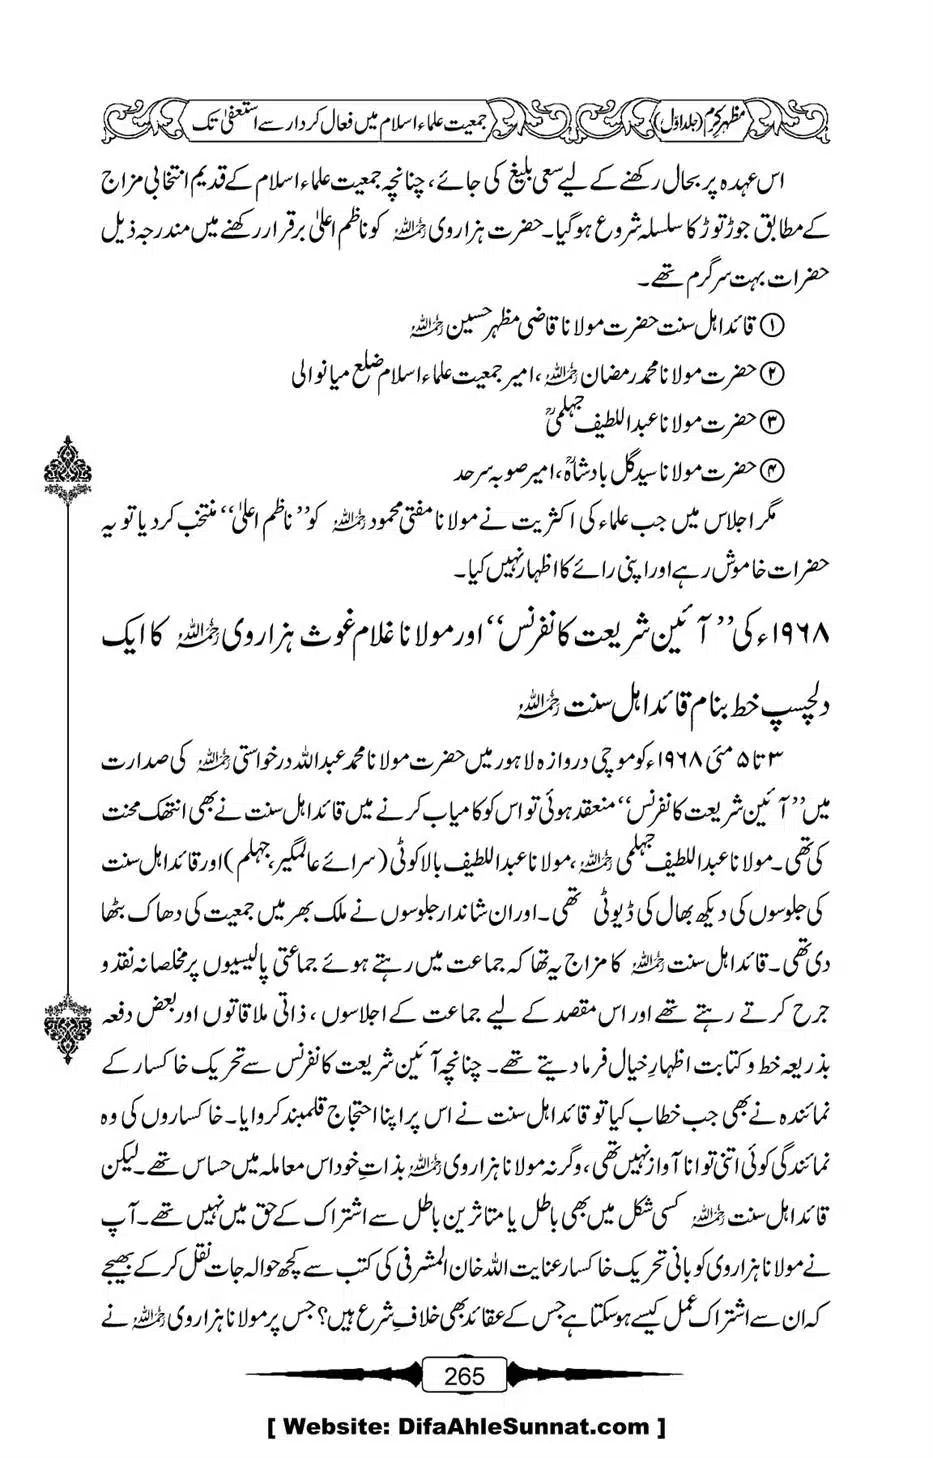 مظہر کرم (جلد اوّل) جمعیت علماء اسلام میں فعال کردار سے استعفیٰ تک
اس عہدہ پر بحال رکھنے کے لیے سعی بلیغ کی جائے، چنانچہ جمعیت علماء اسلام کے قدیم انتخابی مزاج
کے مطابق جوڑ توڑ کا سلسلہ شروع ہوگیا۔ حضرت ہزاروی رحمہ اللہ کو ناظم اعلیٰ برقرار رکھنے میں مندرجہ ذیل
حضرات بہت سرگرم تھے۔
① قائد اہل سنت حضرت مولانا قاضی مظہر حسین رحمہ اللہ
② حضرت مولانا محمد رمضان رحمہ اللہ، امیر جمعیت علماء اسلام ضلع میانوالی
③ حضرت مولانا عبداللطیف جہلمیؒ
④ حضرت مولانا سید گل بادشاہؒ، امیر صوبہ سرحد
مگر اجلاس میں جب علماء کی اکثریت نے مولانا مفتی محمود رحمہ اللہ کو ’’ناظم اعلیٰ‘‘ منتخب کردیا تو یہ
حضرات خاموش رہے اور اپنی رائے کا اظہار نہیں کیا۔
۱۹۶۸ء کی ’’آئین شریعت کانفرنس‘‘ اور مولانا غلام غوث ہزاروی رحمہ اللہ کا ایک
دلچسپ خط بنام قائد اہل سنت رحمہ اللہ
۳ تا ۵ مئی ۱۹۶۸ء کو موچی دروازہ لاہور میں حضرت مولانا محمد عبداللہ درخواستی رحمہ اللہ کی صدارت
میں ’’آئین شریعت کانفرنس‘‘ منعقد ہوئی تو اس کو کامیاب کرنے میں قائد اہل سنت نے بھی انتھک محنت
کی تھی۔ مولانا عبداللطیف جہلمی رحمہ اللہ، مولانا عبداللطیف بالاکوٹی (سرائے عالمگیر، جہلم) اور قائد اہل سنت
کی جلوسوں کی دیکھ بھال کی ڈیوٹی تھی۔ اور ان شاندار جلوسوں نے ملک بھر میں جمعیت کی دھاک بٹھا
دی تھی۔ قائد اہل سنت رحمہ اللہ کا مزاج یہ تھا کہ جماعت میں رہتے ہوئے جماعتی پالیسیوں پر مخلصانہ نقد و
جرح کرتے رہتے تھے اور اس مقصد کے لیے جماعت کے اجلاسوں، ذاتی ملاقاتوں اور بعض دفعہ
بذریعہ خط و کتابت اظہارِ خیال فرما دیتے تھے۔ چنانچہ آئین شریعت کانفرنس سے تحریک خاکسار کے
نمائندہ نے بھی جب خطاب کیا تو قائد اہل سنت نے اس پر اپنا احتجاج قلمبند کروایا۔ خاکساروں کی وہ
نمائندگی کوئی اتنی توانا آواز نہیں تھی، وگرنہ مولانا ہزاروی رحمہ اللہ بذاتِ خود اس معاملہ میں حساس تھے۔ لیکن
قائد اہل سنت رحمہ اللہ کسی شکل میں بھی باطل یا متاثرین باطل سے اشتراک کے حق میں نہیں تھے۔ آپ
نے مولانا ہزاروی کو بانی تحریک خاکسار عنایت اللہ خان المشرقی کی کتب سے کچھ حوالہ جات نقل کرکے بھیجے
کہ ان سے اشتراک عمل کیسے ہوسکتا ہے جس کے عقائد بھی خلافِ شرع ہیں؟ جس پر مولانا ہزاروی رحمہ اللہ نے
265
[ Website: DifaAhleSunnat.com ]